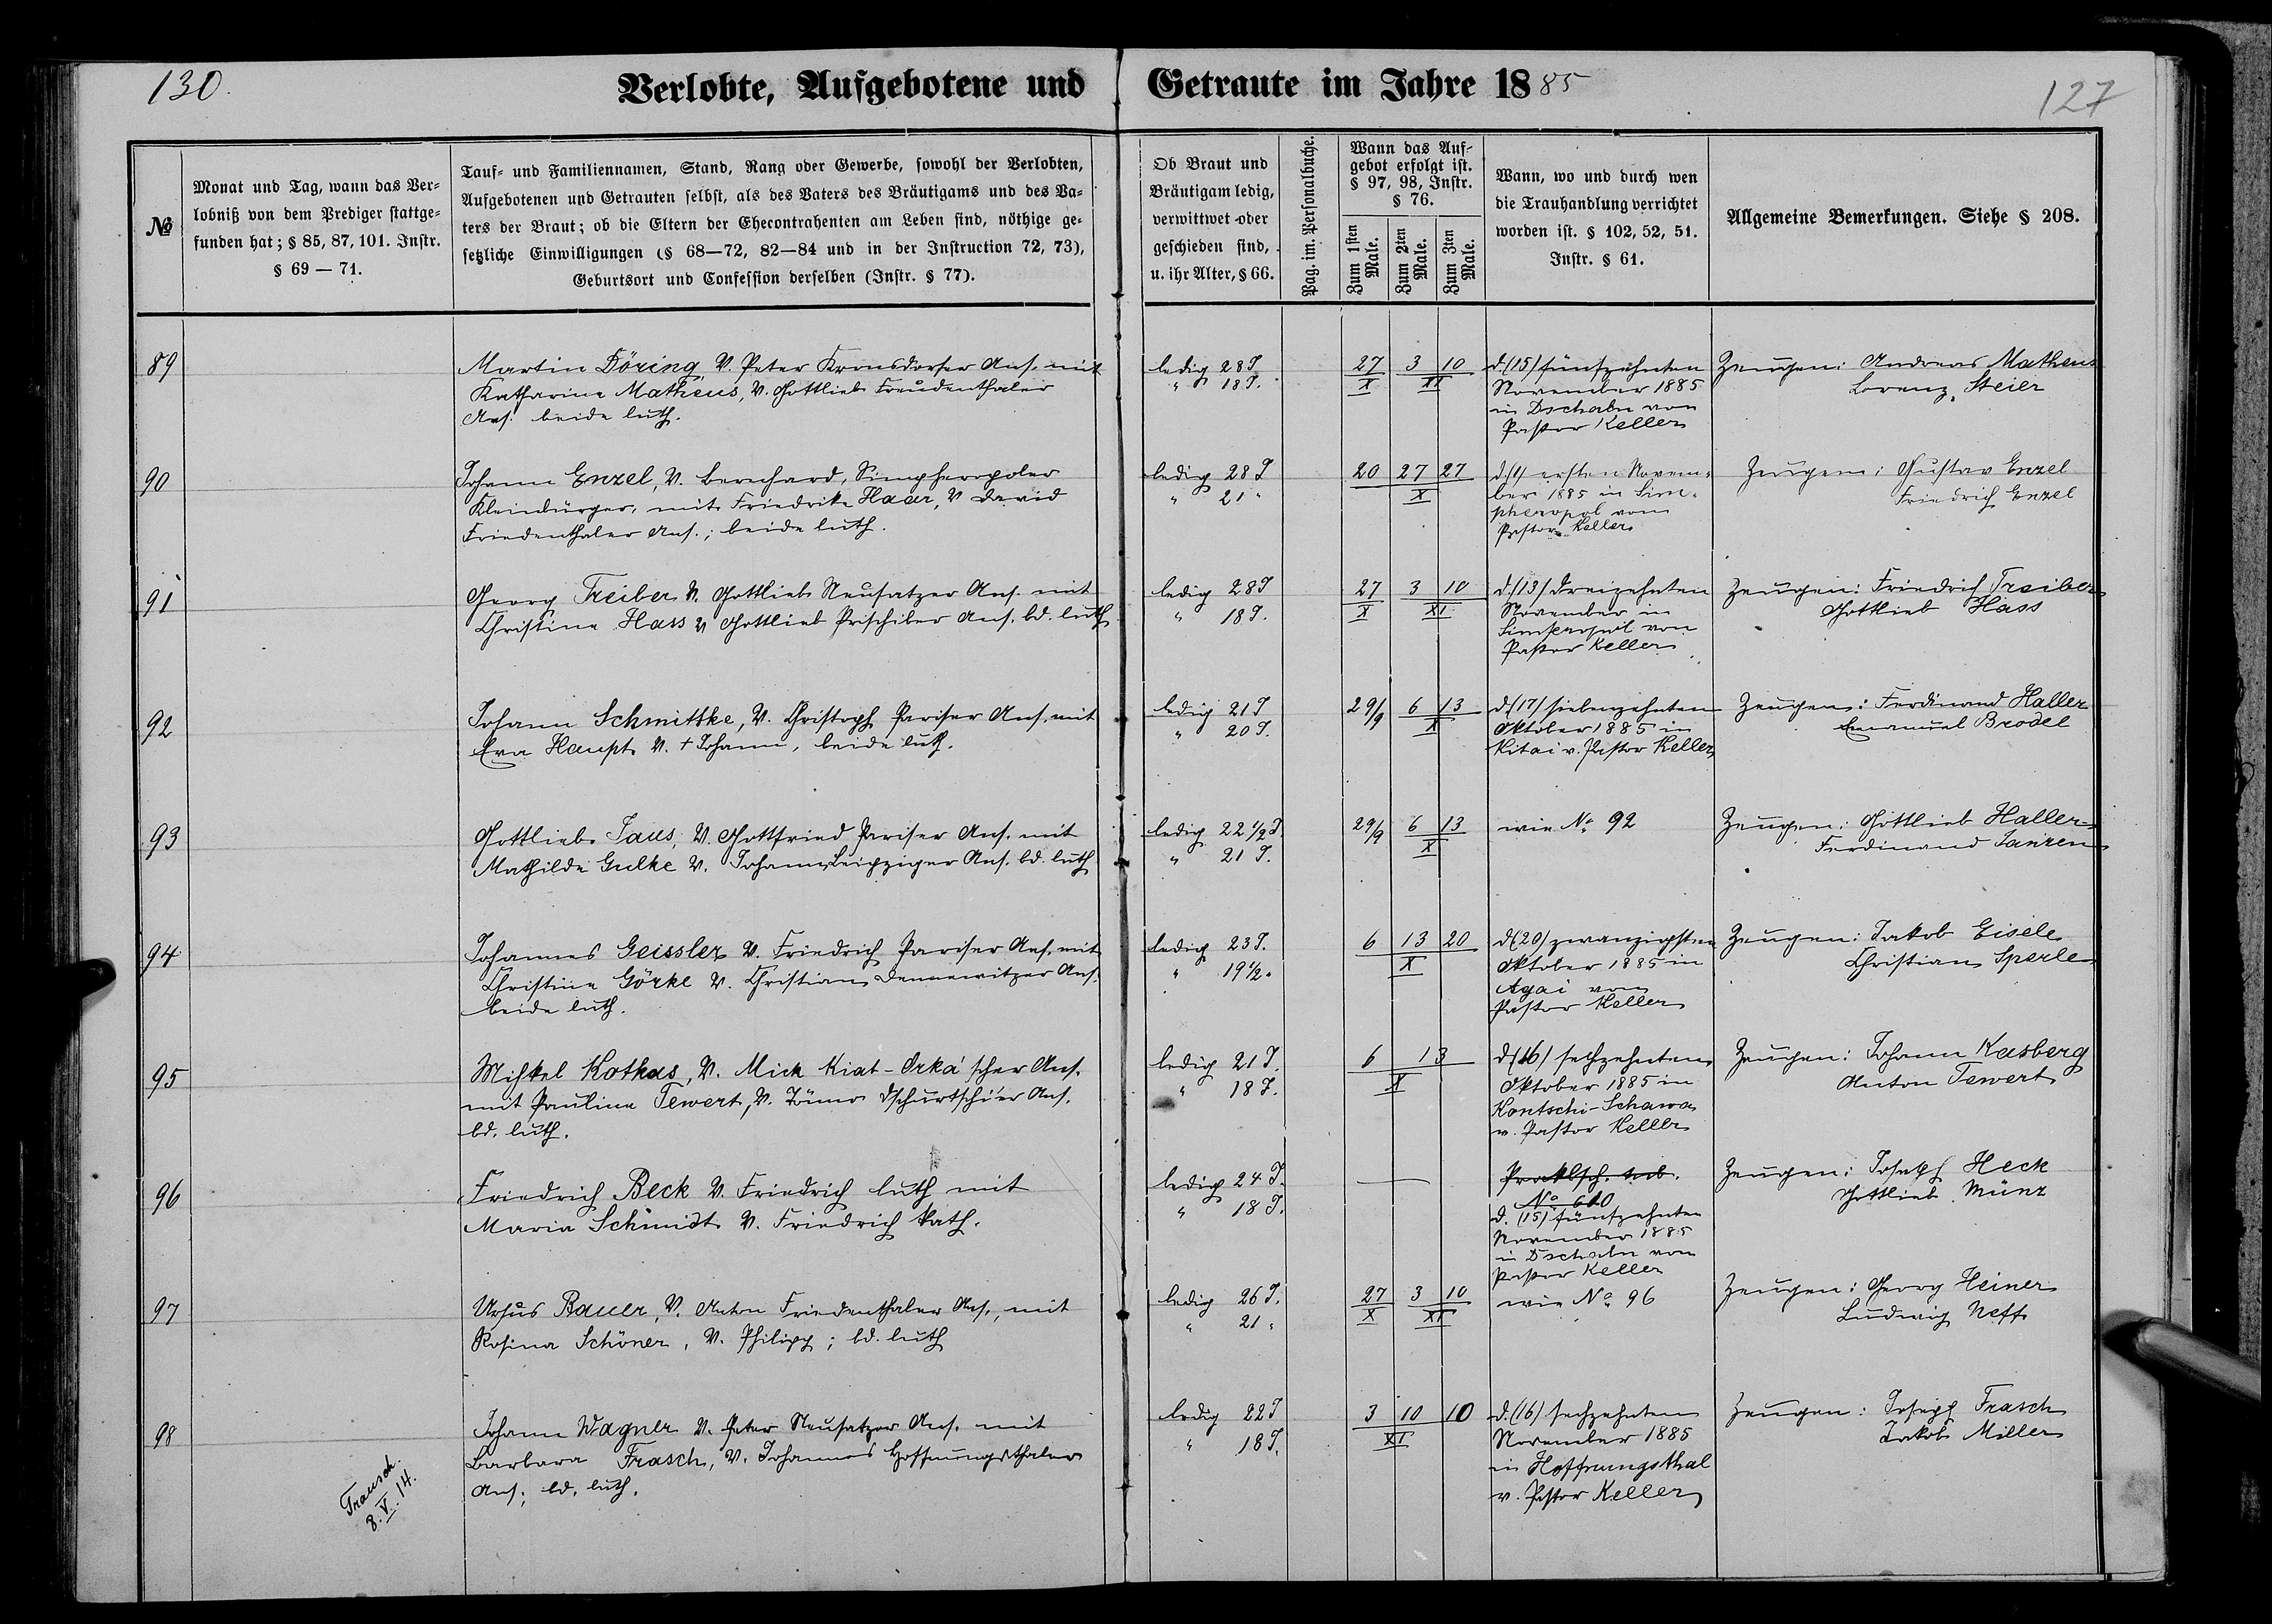 130.
127
Verlobte, Aufgebotene und Getraute im Jahre 1885
№
Monat und Tag, wann das Ver-
lobniß von dem Prediger stattge-
funden hat; § 85, 87, 101. Instr.
§ 69 — 71.
Tauf- und Familiennamen, Stand, Rang oder Gewerbe, sowohl der Verlobten,
Aufgebotenen und Getrauten selbst, als des Vaters des Bräutigams und des Va-
ters der Braut; ob die Eltern der Ehecontrahenten am Leben sind, nöthige ge-
setzliche Einwilligungen (§ 68—72, 82—84 und in der Instruction 72, 73),
Geburtsort und Confession derselben (Instr. § 77).
Ob Braut und
Bräutigam ledig,
verwittwet oder
geschieden sind,
u. ihr Alter, § 66.
Pag. im. Personalbuche.
Wann das Auf-
gebot erfolgt ist.
§ 97, 98, Instr.
§ 76.
Zum 1sten Male.
Zum 2ten Male.
Zum 3ten Male.
Wann, wo und durch wen
die Trauhandlung verrichtet
worden ist. § 102, 52, 51.
Instr. § 61.
Allgemeine Bemerkungen. Siehe § 208.
89
Martin Döring, V. Peter Kronsdorfer Ans. mit
Katharina Matheus, V. Gottlieb Freudenthaler
Ans. beide luth.
ledig 28 J
" 18 J.
27 3 10
X XI
d. (15) fünfzehnten
November 1885
in Dschabu von
Pastor Keller
Zeugen: Andreas Matheus
Lorenz Steier
90
Johann Enzel, V. Bernhard, Simpheropoler
Kleinbürger, mit Friedrike Haar, V. David
Friedenthaler Ans.; beide luth.
ledig 28 J
" 21 "
20 27 27
X
d. (1) ersten Novem-
ber 1885 in Sim-
pheropol vom
Pastor Keller
Zeugen: Gustav Enzel
Friedrich Enzel
91
Georg Treiber V. Gottlieb Neusatzer Ans. mit
Christine Hass V. Gottlieb Prischiber Ans. bd. luth
ledig 28 J
" 18 J.
27 3 10
X XI
d. (13) dreizehnten
November in
von
Pastor Keller
Zeugen: Friedrich Treiber
Gottlieb Hass
92
Johann Schmittke, V. Christoph Pariser Ans. mit
Eva Haupt V. + Johann, beide luth.
ledig 21 J
" 20 J.
29/9 6 13
X
d. (17) siebenzehnten
Oktober 1885 in
Kitai v. Pastor Keller
Zeugen: Ferdinand Haller
Emanuel Brodel
93
Gottlieb Jaus, V. Gottfried Pariser Ans. mit
Mathilde Gulke V. Johann Leipziger Ans. bd. luth
ledig 22 1/2 J.
" 21 J.
29/9 6 13
X
wie № 92
Zeugen: Gottlieb Haller
Ferdinand Janzen
94
Johannes Geissler V. Friedrich Pariser Ans. mit
Christine Görke V. Christian Dennewitzer Ans.
beide luth.
ledig 23 J.
" 19 1/2 "
6 13 20
X
d. (20) zwanzigsten
Oktober 1885 in
Agai vom
Pastor Keller
Zeugen: Jakob Eisele
Christian Sperle
95
Michkel Kothas, V. Mick Kiat-Orka'scher Ans.
mit Pauline Tewert, V. Tönno Dschurtschi'er Ans.
bd. luth.
ledig 21 J.
" 18 J.
6 13
X
d. (16) sechzehnten
Oktober 1885 in
Kontschi-Schawa
v. Pastor Keller
Zeugen: Johann Kasberg
Anton Tewert
96
Friedrich Beck V. Friedrich luth mit
Maria Schmidt V. Friedrich kath.
ledig 24 J.
" 18 J.
—
№ 600
d. (15) fünfzehnten
November 1885
in Dschabu von
Pastor Keller
Zeugen: Joseph Heck
Gottlieb Münz
97
Ursus Bauer, V. Anton Friedenthaler Ans., mit
Rosina Schöner, V. Philipp; bd. luth
ledig 26 J.
" 21 "
27 3 10
X XI
wie № 96
Zeugen: Georg Heiner
Ludwig Neff
98
Johann Wagner V. Peter Neusatzer Ans. mit
Barbara Frasch, V. Johannes Hoffnungsthaler
Ans; bd. luth.
Trausch.
8. V. 14.
ledig 22 J
" 18 J.
3 10 10
XI
d. (16) sechzehnten
November 1885
in Hoffnungsthal
v. Pastor Keller
Zeugen: Joseph Frasch
Jakob Miller